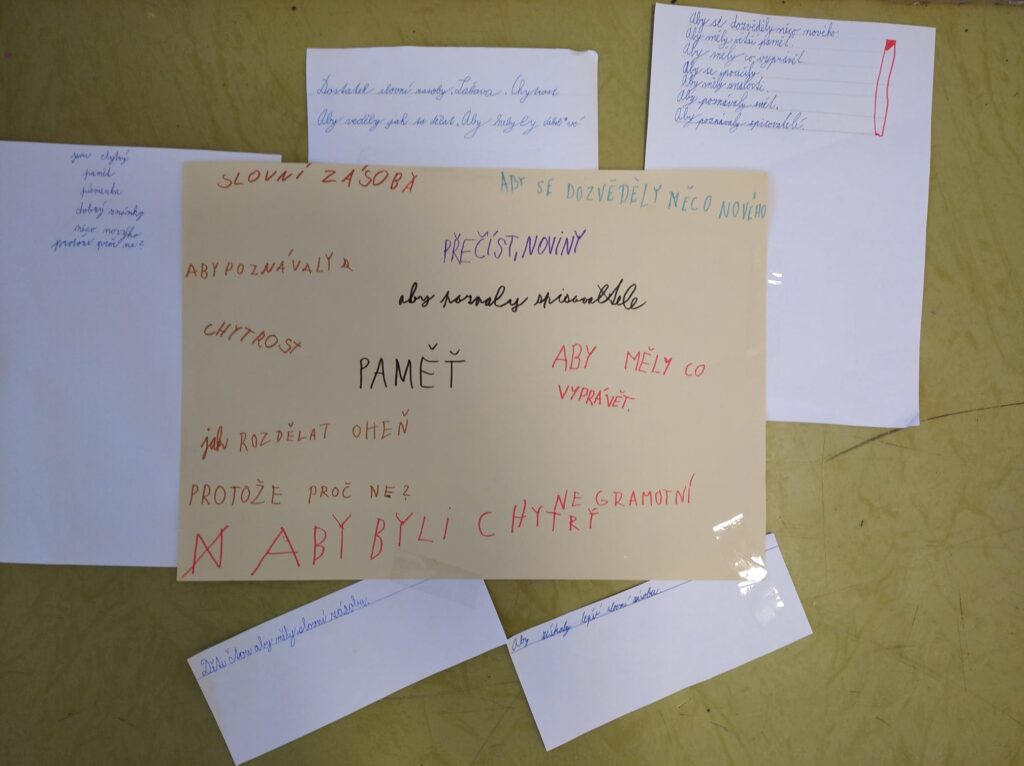 Aby se dozvěděly něco nového.
Aby měly
Aby měly co vyprávit.
Aby se poučily.
Aby měly
Aby poznávaly svět.
Aby poznávaly spisovatelé.
Dostatek slovní zásoby. Zábava. Chytrost
Aby věděly jak to dělat. Aby nebyly
jsou chytrý
paměť
písmenka
dobrý známky
něco nového
protože proč ne?
SLOVNÍ ZÁSOBA
ABY SE DOZVĚDĚLY NĚCO NOVÉHO
PŘEČÍST, NOVINY
ABY POZNÁVALY
aby poznaly spisovatele
CHYTROST
PAMĚŤ
ABY MĚLY CO
VYPRÁVĚT.
jak ROZDĚLAT OHEŇ
PROTOŽE PROČ NE?
NE GRAMOTNÍ
ABY BYLI CHYTRÝ
Děti čtou aby měly slovní zásobu.
Aby získaly lepší slovní zásobu.